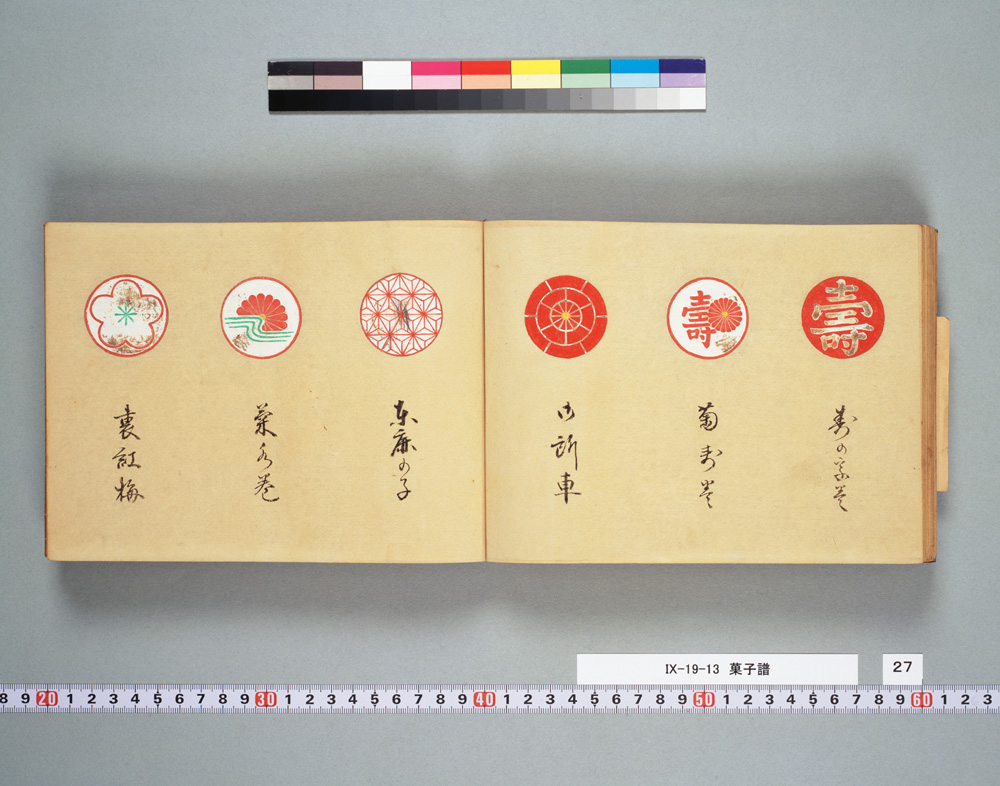 壽
寿の字巻
壽
菊寿巻
御所車
鹿の子
菊水巻
裏紅梅
IX-19-13 菓子譜
27
8 9 20 1 2 3 4 5 6 7 8 9 30 1 2 3 4 5 6 7 8 9 40 1 2 3 4 5 6 7 8 9 50 1 2 3 4 5 6 7 8 9 60 1 2 3